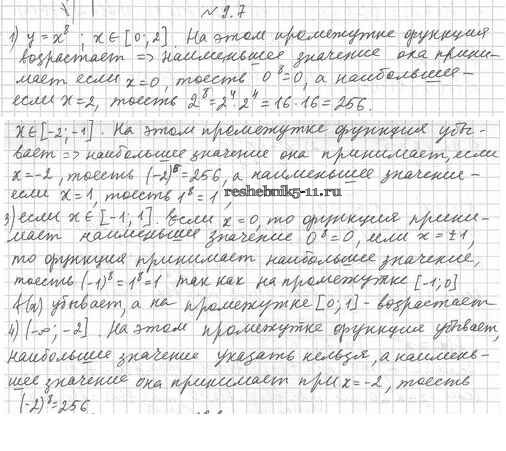 № 9.7
1) y = x⁸ ; x∈[0; 2] На этом промежутке функция
возрастает => наименьшее значение она прини-
мает если x=0, тоесть 0⁸=0, а наибольшее -
если x=2, тоесть 2⁸=2⁴·2⁴=16·16=256.
x∈[-2;-1]. На этом промежутке функция убы-
вает => наибольшее значение она принимает, если
x=-2, тоесть (-2)⁸=256, а наименьшее значение -
если x=1, тоесть 1⁸=1,
reshebnik5-11.ru
3) если x∈[-1; 1]. Если x=0, то функция прини-
мает наименьшее значение 0⁸=0, если x=±1,
то функция принимает наибольшее значение,
тоесть (-1)⁸=1⁸=1 так как на промежутке [-1;0]
f(a) убывает, а на промежутке [0; 1] - возрастает
4) (-∞; -2]. На этом промежутке функция убывает,
наибольшее значение указать нельзя, а наимень-
шее значение она принимает при x=-2, тоесть
(-2)⁸=256.